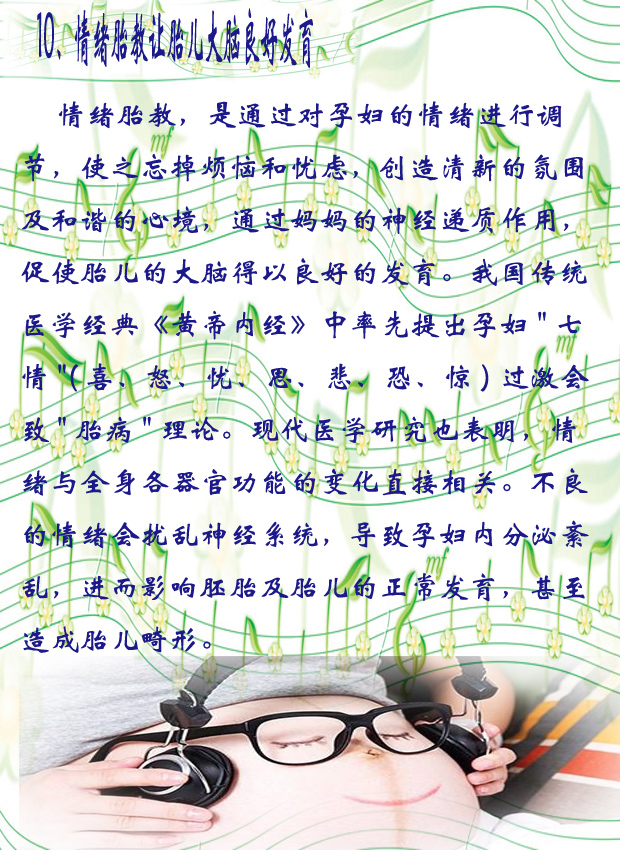 10、情绪胎教让胎儿大脑良好发育
情绪胎教，是通过对孕妇的情绪进行调
节，使之忘掉烦恼和忧虑，创造清新的氛围
及和谐的心境，通过妈妈的神经递质作用，
促使胎儿的大脑得以良好的发育。我国传统
医学经典《黄帝内经》中率先提出孕妇"七
情"(喜、怒、忧、思、悲、恐、惊)过激会
致"胎病"理论。现代医学研究也表明，情
绪与全身各器官功能的变化直接相关。不良
的情绪会扰乱神经系统，导致孕妇内分泌紊
乱，进而影响胚胎及胎儿的正常发育，甚至
造成胎儿畸形。